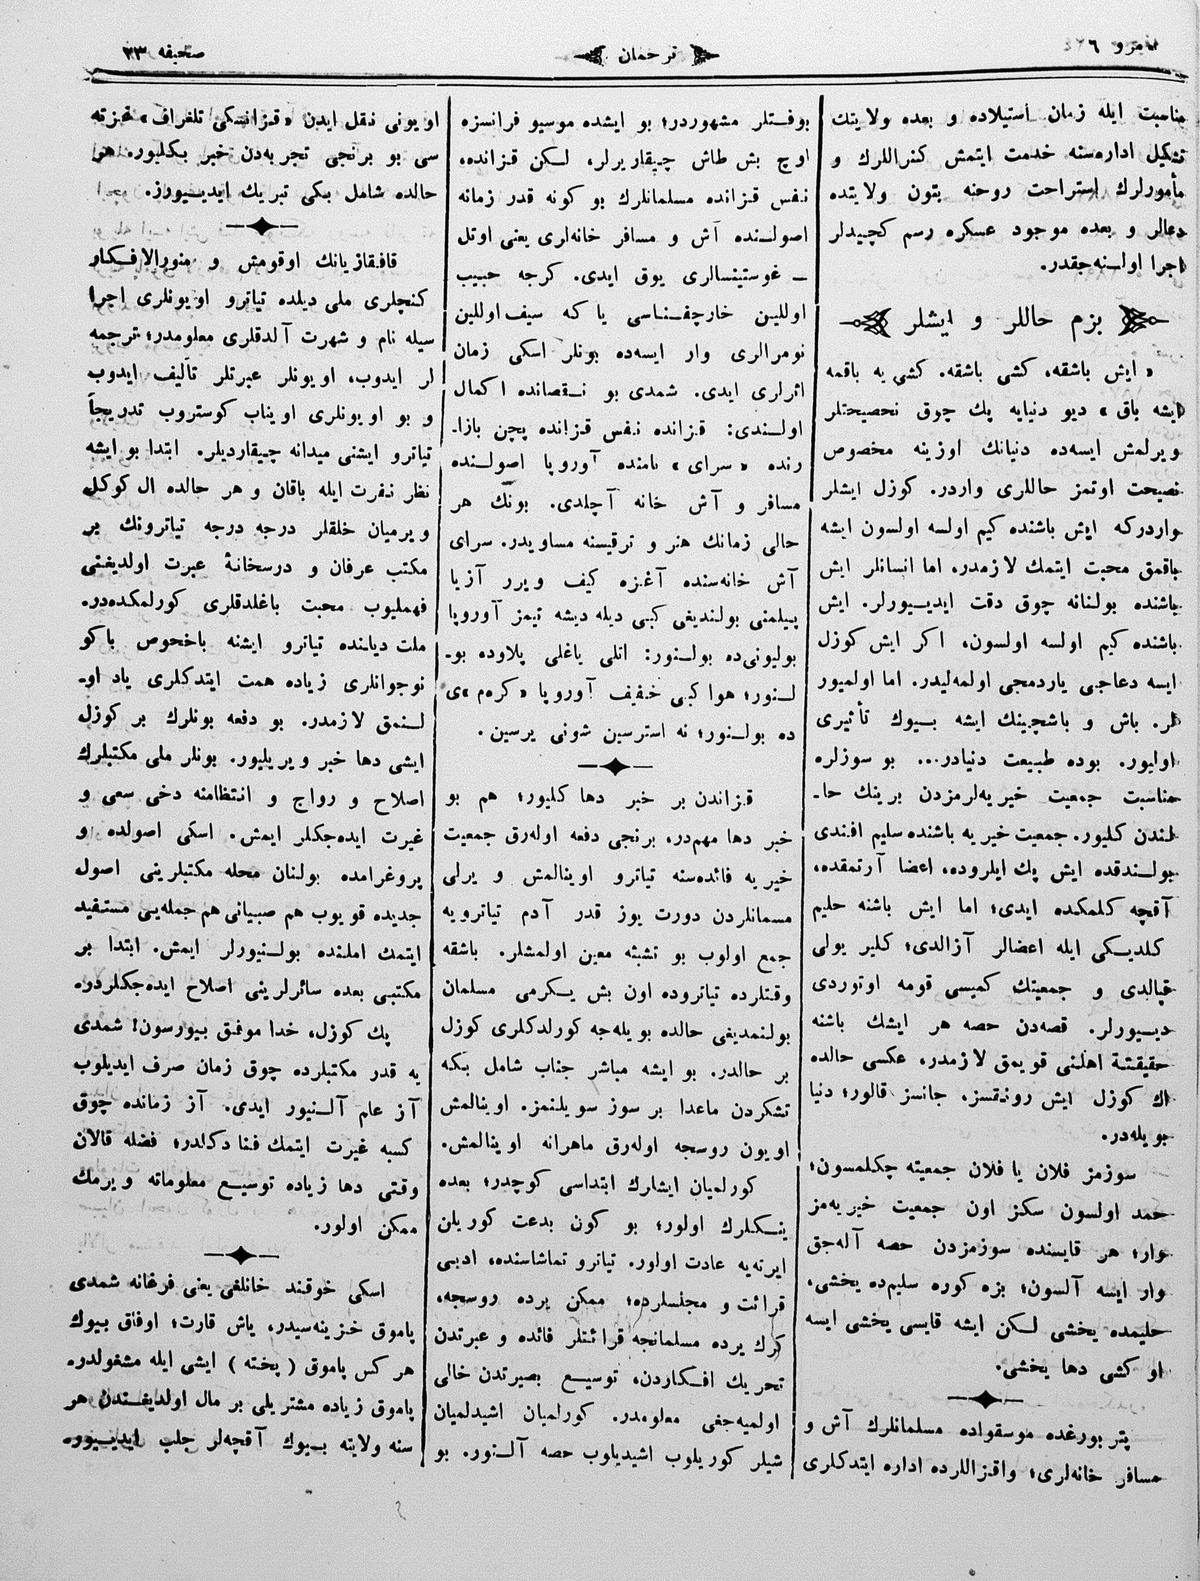 نمرو ٦
ترجمان
صحیفه ٢٣
مناسبت ایله زمان استیلاده و بعده ولایتك
تشكیل اداره‌سنه خدمت ایتمش كنراللرك و
مأمورلرك استراحت روحنه بتون ولایتده
دعالر و بعده موجود عسكره رسم كچیدلر
اجرا اولنه‌جقدر.
بزم حاللر و ایشلر
« ایش باشقه، كشی باشقه. كشی یه باقمه
ایشه باق » دیو دنیایه پك چوق نصیحتلر
ویرلمش ایسه‌ده دنیانك اوزینه مخصوص
نصیحت اوتمز حاللری واردر. كوزل ایشلر
واردركه ایش باشنده كیم اولسه اولسون ایشه
باقمق محبت ایتمك لازمدر. اما انسانلر ایش
باشنده بولنانه چوق دقت ایدییورلر. ایش
باشنده كیم اولسه اولسون، اكر ایش كوزل
ایسه دعاجی یاردمجی اولمه‌لیدر. اما اولمیور
لر. باش و باشچینك ایشه بیوك تأثیری
اولیور. بوده طبیعت دنیادر... بو سوزلره
مناسبت جمعیت خیریه‌لرمزدن برینك حا۔
لندن كلیور. جمعیت خیریه باشنده سلیم افندی
بولندقده ایش پك ایلروده، اعضا آرتمقده،
آقچه كلمكده ایدی؛ اما ایش باشنه حلیم
كلدیكی ایله اعضالر آزالدی؛ كلیر یولی
قپالدی و جمعیتك كمیسی قومه اوتوردی
دییورلر. قصه‌دن حصه هر ایشك باشنه
حقیقتة اهلنی قویمق لازمدر. عكسی حالده
اك كوزل ایش رونقسز، جانسز قالور؛ دنیا
بویله‌در.
سوزمز فلان یا فلان جمعیته چكلمسون؛
حمد اولسون سكز اون جمعیت خیریه‌مز
وار؛ هر قایسنده سوزمزدن حصه آله‌جق
وار ایسه آلسون؛ بزه كوره سلیم‌ده یخشی،
حلیمده یخشی لكن ایشه قایسی یخشی ایسه
او كشی دها یخشی.
پتربورغده موسقواده مسلمانلرك آش و
مسافر خانه‌لری؛ واقزاللرده اداره ایتدكلری
بوفتلر مشهوردر؛ بو ایشده موسیو فرانسزه
اوچ بش طاش چیقاریرلر. لكن قزانده،
نفس قزانده مسلمانلرك بو كونه قدر زمانه
اصولنده آش و مسافر خانه‌لری یعنی اوتل
ـ غوستینسالری یوق ایدی. كرچه حبیب
اوللین خارچفناسی یا كه سیف اوللین
نومرالری وار ایسه‌ده بونلر اسكی زمان
اثرلری ایدی. شمدی بو نقصانده اكمال
اولندی: قزانده نفس قزانده پچن بازا۔
رنده « سرای » نامنده آوروپا اصولنده
مسافر و آش خانه آچلدی. بونك هر
حالی زمانك هنر و ترقیسنه مساویدر. سرای
آش خانه‌سنده آغزه كیف ویرر آزیا
پیلمنی بولندیغی كبی دیله دیشه تیمز آوروپا
بولیونی‌ده بولنور: اتلی یاغلی پلاوده بو۔
لنور؛ هوا كبی خفیف آوروپا « كرم »ی
ده بولنور؛ نه استرسین شونی یرسین.
قزاندن بر خبر دها كلیور؛ هم بو
خبر دها مهم‌در، برنجی دفعه اوله‌رق جمعیت
خیریه فائده‌سنه تیاترو اوینالمش و یرلی
مسمانلردن دورت یوز قدر آدم تیاترویه
جمع اولوب بو تشبثه معین اولمشلر. باشقه
وقتلرده تیاتروده اون بش یكرمی مسلمان
بولنمدیغی حالده بویله‌جه كورلدكلری كوزل
بر حالدر. بو ایشه مباشر جناب شامل بكه
تشكردن ماعدا بر سوز سویلنمز. اوینالمش
اویون روسجه اوله‌رق ماهرانه اوینالمش.
كورلمیان ایشلرك ابتداسی كوچدر؛ بعده
ینكلرك اولور؛ بو كون بدعت كوریلن
ایرته‌یه عادت اولور. تیاترو تماشاسنده، ادبی
قرائت و مجلسلرده؛ ممكن یرده روسجه،
كرك یرده مسلمانجه قرائتلر فائده و عبرتدن
تحریك افكاردن، توسیع بصیرتدن خالی
اولمیه‌جغی معلومدر. كورلمیان اشیدلمیان
شیلر كوریلوب اشیدیلوب حصه آلنور. بو
اویونی نقل ایدن « قزانسكی تلغراف » غزته
سی بو برنجی تجربه‌دن خبر بكلیور. هر
حالده شامل بكی تبریك ایدییورز.
قافقازیانك اوقومش و منورالافكار
كنچلری ملی دیلده تیاترو اویونلری اجرا
سیله نام و شهرت آلدقلری معلومدر؛ ترجمه
لر ایدوب، اویونلر عبرتلر تألیف ایدوب
و بو اویونلری اویناب كوستروب تدریجاً
تیاترو ایشنی میدانه چیقاردیلر. ابتدا بو ایشه
نظر نفرت ایله باقان و هر حالده ال كوكل
ویرمیان خلقلر درجه درجه تیاترونك بر
مكتب عرفان و درسخانهٔ عبرت اولدیغنی
فهملیوب محبت باغلدقلری كورلمكده‌در.
ملت دیلنده تیاترو ایشنه باخخوص باكو
نوجوانلری زیاده همت ایتدكلری یاد او۔
لنمق لازمدر. بو دفعه بونلرك بر كوزل
ایشی دها خبر ویریلیور. بونلر ملی مكتبلرك
اصلاح و رواج و انتظامنه دخی سعی و
غیرت ایده‌جكلر ایمش. اسكی اصولده و
پروغرامده بولنان محله مكتبلرینی اصول
جدیده قویوب هم صبیانی هم جمله‌یی مستفید
ایتمك املنده بولنیورلر ایمش. ابتدا بر
مكتبی بعده سائرلرینی اصلاح ایده‌جكلردر.
پك كوزل، خدا موفق بیورسون! شمدی
یه قدر مكتبلرده چوق زمان صرف ایدیلوب
آز علم آلنیور ایدی. آز زمانده چوق
كسبه غیرت ایتمك فنا دكلدر؛ فضله قالان
وقتی دها زیاده توسیع معلوماته ویرمك
ممكن اولور.
اسكی خوقند خانلغی یعنی فرغانه شمدی
پاموق خزینه‌سیدر، یاش قارت؛ اوفاق بیوك
هر كس پاموق ( پخته ) ایشی ایله مشغولدر.
پاموق زیاده مشتریلی بر مال اولدیغندن هر
سنه ولایته بیوك آقچه‌لر جلب ایدییور.